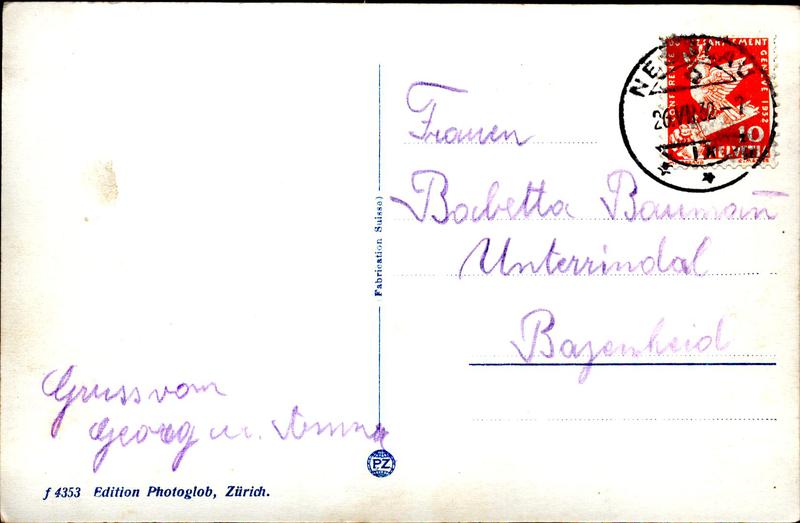 NESSLAU
26.VII.32 - 7
CONFERENCE DU DESARMEMENT GENEVE 1932
10
HELVETIA
Frauen
Babetta Baumann
Unterrindal
Bazenheid
Fabrication Suisse)
Gruss von
Georg u. Anna
PZ
f 4353 Edition Photoglob, Zürich.